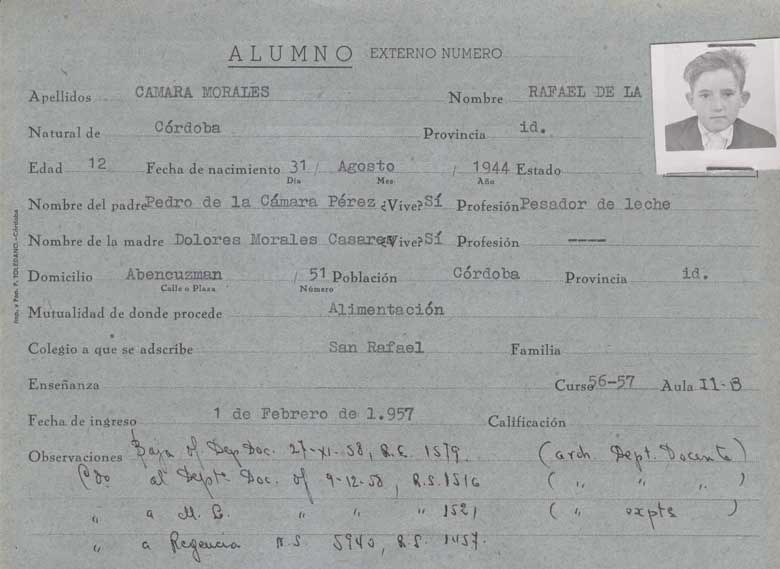 ALUMNO EXTERNO NUMERO
Apellidos CAMARA MORALES Nombre RAFAEL DE LA
Natural de Córdoba Provincia id.
Edad 12 Fecha de nacimiento 31 / Agosto / 1944 Estado
Día Mes Año
Nombre del padre Pedro de la Cámara Pérez ¿Vive? Sí Profesión Pesador de leche
Nombre de la madre Dolores Morales Casares ¿Vive? Sí Profesión ----
Domicilio Abencuzman / 51 Población Córdoba Provincia id.
Calle o Plaza Número
Mutualidad de donde procede Alimentación
Colegio a que se adscribe San Rafael Familia
Enseñanza Curso 56-57 Aula II-B
Fecha de ingreso 1 de Febrero de 1.957 Calificación
Observaciones Baja of Dep Doc. 27-XI-58, R.E. 1579. (arch. Dept. Docente)
Cdo al Deptº Doc. of 9-12-58, R.S. 1516 ( " " " )
" a M.L. " " " 1521 ( " expts )
" a Regencia N.S. 5940, R.S. 1457.
Imp. y Pap. F. TOLEDANO.-Córdoba